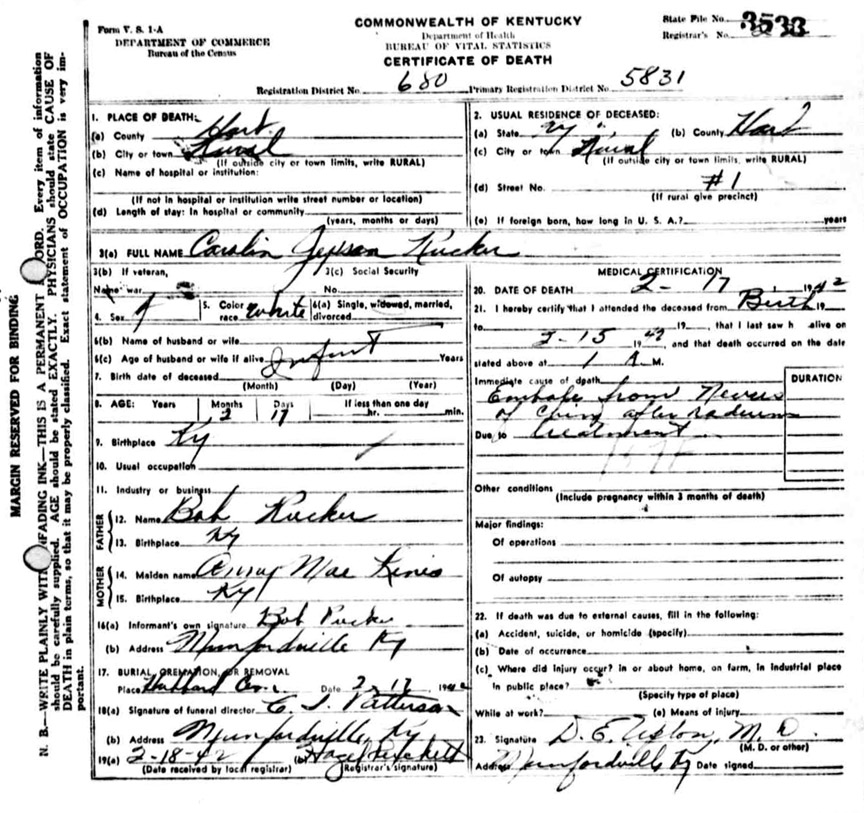 Form V. S. 1-A
DEPARTMENT OF COMMERCE
Bureau of the Census
COMMONWEALTH OF KENTUCKY
Department of Health
BUREAU OF VITAL STATISTICS
CERTIFICATE OF DEATH
State File No. 3533
Registrar's No.
Registration District No. 680 Primary Registration District No. 5831
MARGIN RESERVED FOR BINDING
N. B.—WRITE PLAINLY WITH UNFADING INK—THIS IS A PERMANENT RECORD. Every item of information
should be carefully supplied. AGE should be stated EXACTLY. PHYSICIANS should state CAUSE OF
DEATH in plain terms, so that it may be properly classified. Exact statement of OCCUPATION is very im-
portant.
1. PLACE OF DEATH:
(a) County Hart
(b) City or town Rural
(If outside city or town limits, write RURAL)
(c) Name of hospital or institution:
(If not in hospital or institution write street number or location)
(d) Length of stay: In hospital or community
(years, months or days)
2. USUAL RESIDENCE OF DECEASED:
(a) State Ky (b) County Hart
(c) City or town Rural
(If outside city or town limits, write RURAL)
(d) Street No. #1
(If rural give precinct)
(e) If foreign born, how long in U. S. A.? years
3(a) FULL NAME Carolin Jepson Rucker
3(b) If veteran, 3(c) Social Security
Name war No.
4. Sex F 5. Color race White 6(a) Single, widowed, married, divorced
6(b) Name of husband or wife
6(c) Age of husband or wife if alive Infant Years
7. Birth date of deceased
(Month) (Day) (Year)
8. AGE: Years Months Days If less than one day
2 17 hr. min.
9. Birthplace Ky
10. Usual occupation
11. Industry or business
FATHER
12. Name Bob Rucker
13. Birthplace Ky
MOTHER
14. Maiden name Mae
15. Birthplace Ky
16(a) Informant's own signature Bob Rucker
(b) Address Munfordville Ky
17. BURIAL, CREMATION, OR REMOVAL
Place Hubbard Cem. Date 2-17 1942
18(a) Signature of funeral director C. J. Patterson
(b) Address Munfordville, Ky
19(a) 2-18-42 (b) Hazel Puckett
(Date received by local registrar) (Registrar's signature)
MEDICAL CERTIFICATION
20. DATE OF DEATH 2-17 1942
21. I hereby certify that I attended the deceased from Birth 19
to 2-15 1942 19 , that I last saw h alive on
, and that death occurred on the date
stated above at 1 A M.
Immediate cause of death DURATION
from Nevus
of after radium
Due to treatment
Other conditions
(Include pregnancy within 3 months of death)
Major findings:
Of operations
Of autopsy
22. If death was due to external causes, fill in the following:
(a) Accident, suicide, or homicide (specify)
(b) Date of occurrence
(c) Where did injury occur? in or about home, on farm, in industrial place
in public place?
(Specify type of place)
While at work? (e) Means of injury
23. Signature D. E. Upton, M. D.
(M. D. or other)
Address Munfordville Ky Date signed